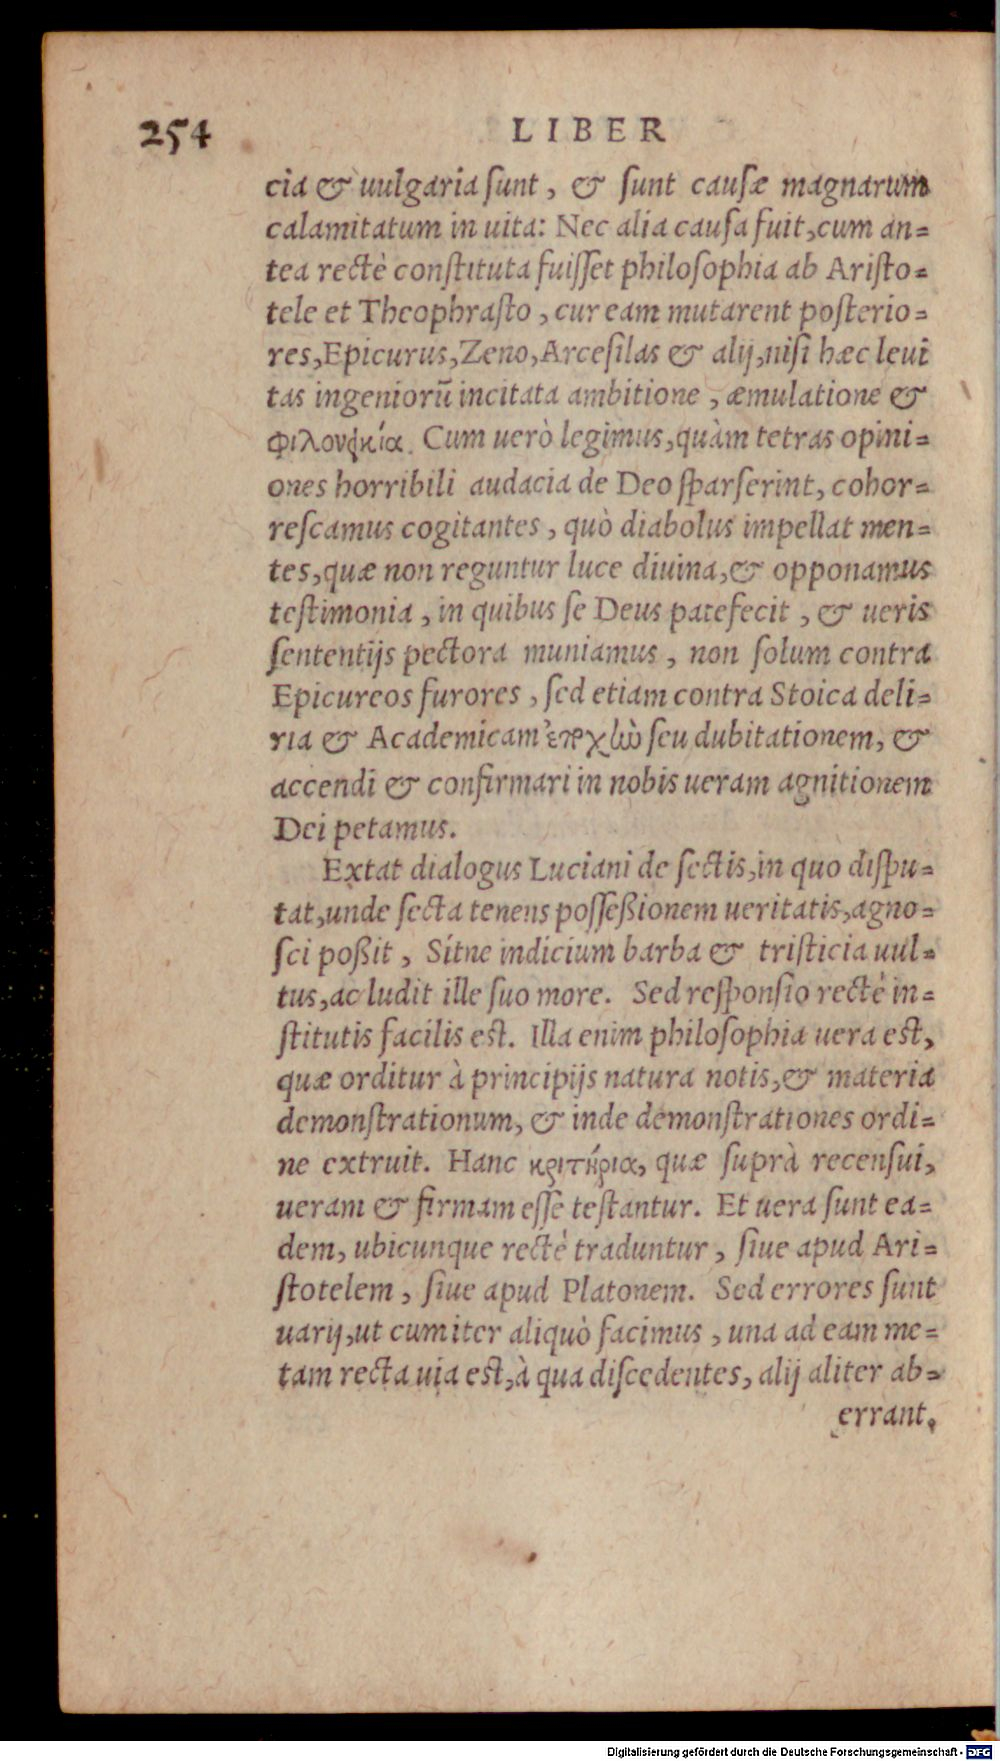 254 LIBER
cia & uulgaria ſunt, & ſunt cauſæ magnarum
calamitatum in uita: Nec alia cauſa fuit, cum an=
tea rectè conſtituta fuiſſet philoſophia ab Ariſto=
tele et Theophraſto, cur eam mutarent poſterio=
res, Epicurus, Zeno, Arceſilas & alij, niſi hæc leui
tas ingeniorũ incitata ambitione, æmulatione &
φιλονεικία. Cum uerò legimus, quàm tetras opini=
ones horribili audacia de Deo ſparſerint, cohor=
reſcamus cogitantes, quò diabolus impellat men=
tes, quæ non reguntur luce diuina, & opponamus
teſtimonia, in quibus ſe Deus patefecit, & ueris
ſententijs pectora muniamus, non ſolum contra
Epicureos furores, ſed etiam contra Stoica deli=
ria & Academicam ἐποχὴν ſeu dubitationem, &
accendi & confirmari in nobis ueram agnitionem
Dei petamus.
Extat dialogus Luciani de ſectis, in quo diſpu=
tat, unde ſecta tenens poſſeßionem ueritatis, agno=
ſci poßit, Sitne indicium barba & triſticia uul=
tus, ac ludit ille ſuo more. Sed reſponſio rectè in=
ſtitutis facilis eſt. Illa enim philoſophia uera eſt,
quæ orditur à principijs natura notis, & materia
demonſtrationum, & inde demonſtrationes ordi=
ne extruit. Hanc κριτήρια, quæ ſuprà recenſui,
ueram & firmam eſſe teſtantur. Et uera ſunt ea=
dem, ubicunque rectè traduntur, ſiue apud Ari=
ſtotelem, ſiue apud Platonem. Sed errores ſunt
uarij, ut cum iter aliquò facimus, una ad eam me=
tam recta uia eſt, à qua diſcedentes, alij aliter ab=
errant.
Digitalisierung gefördert durch die Deutsche Forschungsgemeinschaft - DFG